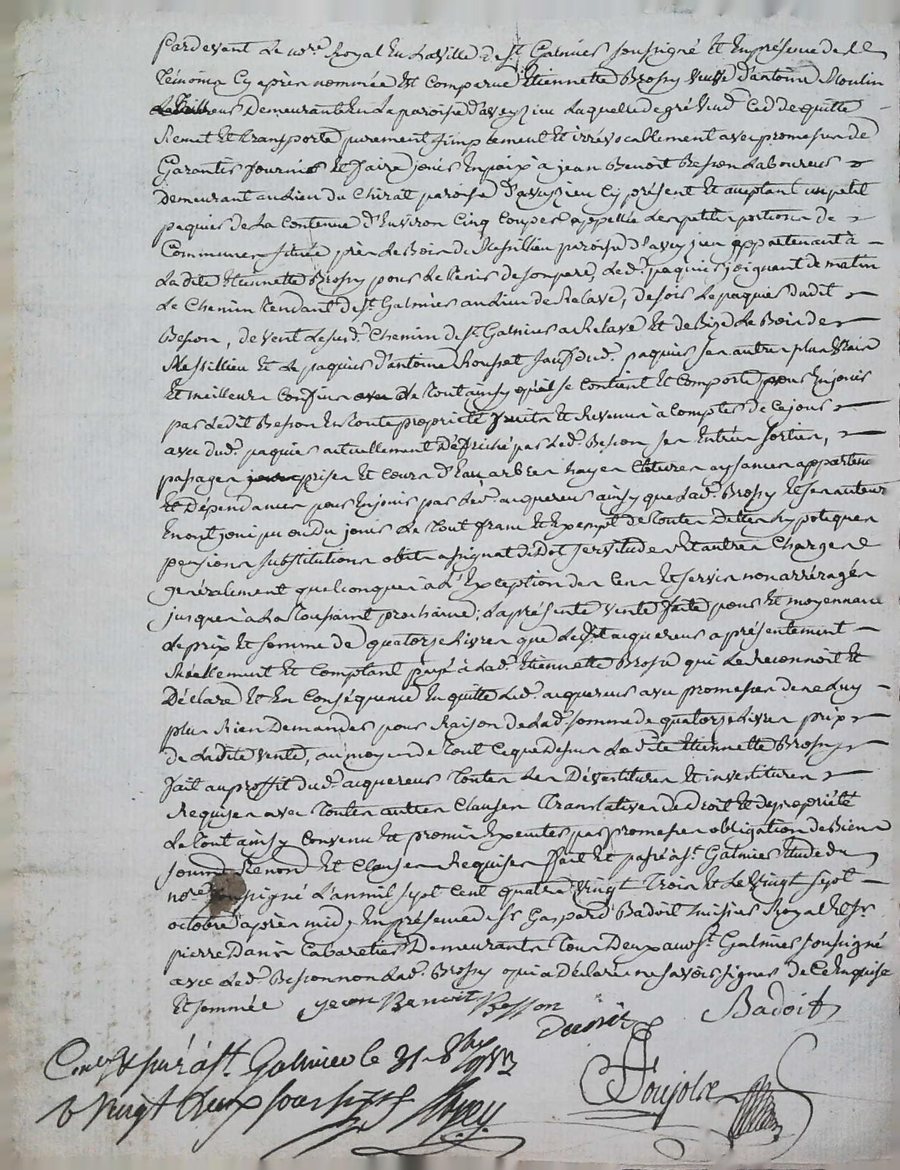 Pardevant Le no.re Royal En La ville de St. Galmier soussigné Et En présence de
témoins Cy après nommés Est comparue Etiennette Brossy veuve d'antoine Moulin
Demeurante En La paroisse d'aveyzieu Laquelle de gré vend Cède quitte
Remet Et transporte purement simplement Et irrévocablement avec promesse de
Garantir fournir Et faire jouir En paix à jean Benoit Besson Laboureur
Demeurant au Lieu du Chirat paroisse d'aveyzieu Cy présent Et acceptant un petit
paquier de La Contenue d'Environ Cinq Coupes appellé Les petites portions de
Communes située près Le Bois de Messillieu paroisse d'aveyzieu appartenant à
Ladite Etiennette Brossy pour Le de son pere, Led. paquier joignant de matin
Le Chemin tendant de St. Galmier au Lieu de Relave, de soir Le paquier dudit
Besson, de vent Le susd. Chemin de St. Galmier a Relave Et de Bize Le Bois de
Messillieu Et Le paquier d'antoine Rousset sauf dud. paquier ses autres plus vrais
Et meilleurs Confins Le tout ainsy qu'il se contient Et Comporte pour En jouir
par Ledit Besson En toute propriété fruits Et Revenus à Compter de Ce jour
avec dud. paquier actuellement Défriché par Led. Besson ses Entrées sorties,
passages prises Et Cours d'Eau arbres hayes Clotures aysances appartenances
Et Dépendances pour En jouir par Led. acquereur ainsy que Lad. Brossy Et ses auteurs
En ont joui pu ou Du jouir Le tout franc Et Exempt de toutes Dettes hypoteques
pensions substitutions obits servitudes Et autres Charges
généralement quelconques à L'Exception des Cens Et servis non arréragés
jusques à La Toussaint prochaine; La présente vente faite pour Et moyennant
Le prix Et somme de quatorse Livres que Ledit acquereur a présentement
Réellement Et Comptant payé à Lad. Etiennette Brosse qui Le Reconnoit Et
Déclare Et En Conséquence En quitte Led. acquereur avec promesse de ne Luy
plus Rien Demander pour Raison de Lad. somme de quatorse Livres prix
de Ladite vente, au moyen de tout Ce que Dessus Ladite Etiennette Brossy
fait au proffit dud. acquereur toutes Les Dévestitures Et investitures
Requises avec toutes autres Clauses translatives de Droit Et de propriété
Le tout ainsy Convenu Et promis Executer par promesses obligation de Biens
soumis. Renonc. Et Clauses Requises fait Et passé à St. Galmier Etude du
no.re soussigné L'an mil sept Cent quatre vingt Trois Et Le vingt sept
octobre après midy En présence de Sr. Gaspard Badoit huissier Royal Et Sr.
pierre Cabaretier Demeurants tous Deux aud. St. Galmier soussigné
avec Led. Besson non Lad. Brossy qui a Déclaré ne savoir signer de Ce Enquise
Et sommée
jean Benoit Besson
Badoit
Poujolat
St. Galmier le 31 8bre
vingt deux sous six